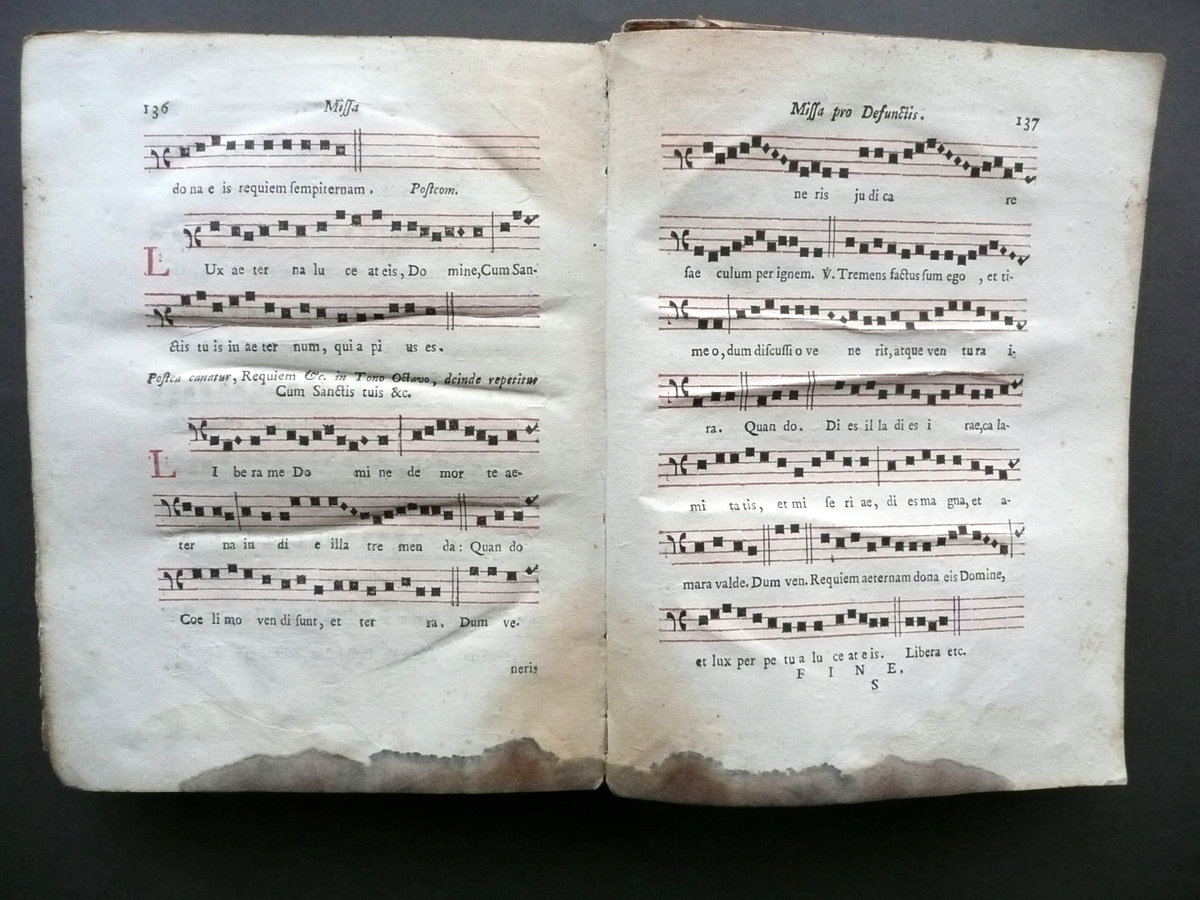 136 Missa
do na e is requiem sempiternam. Postcom.
L Ux ae ter na lu ce at eis, Do mine, Cum San-
ctis tu is in ae ter num, qui a pi us es.
Postea canatur, Requiem &c. in Tono Octavo, deinde repetitur
Cum Sanctis tuis &c.
L I be ra me Do mi ne de mor te ae-
ter na in di e illa tre men da: Quan do
Coe li mo ven di sunt, et ter ra. Dum ve-
neris
Missa pro Defunctis. 137
ne ris ju di ca re
sae culum per ignem. ℣. Tremens factus sum ego, et ti-
me o, dum discussi o ve ne rit, atque ven tu ra i-
ra. Quan do. Di es il la di es i rae, ca la-
mi ta tis, et mi se ri ae, di es ma gna, et a-
mara valde. Dum ven. Requiem aeternam dona eis Domine,
et lux per pe tu a lu ce at e is. Libera etc.
F I N E.
S